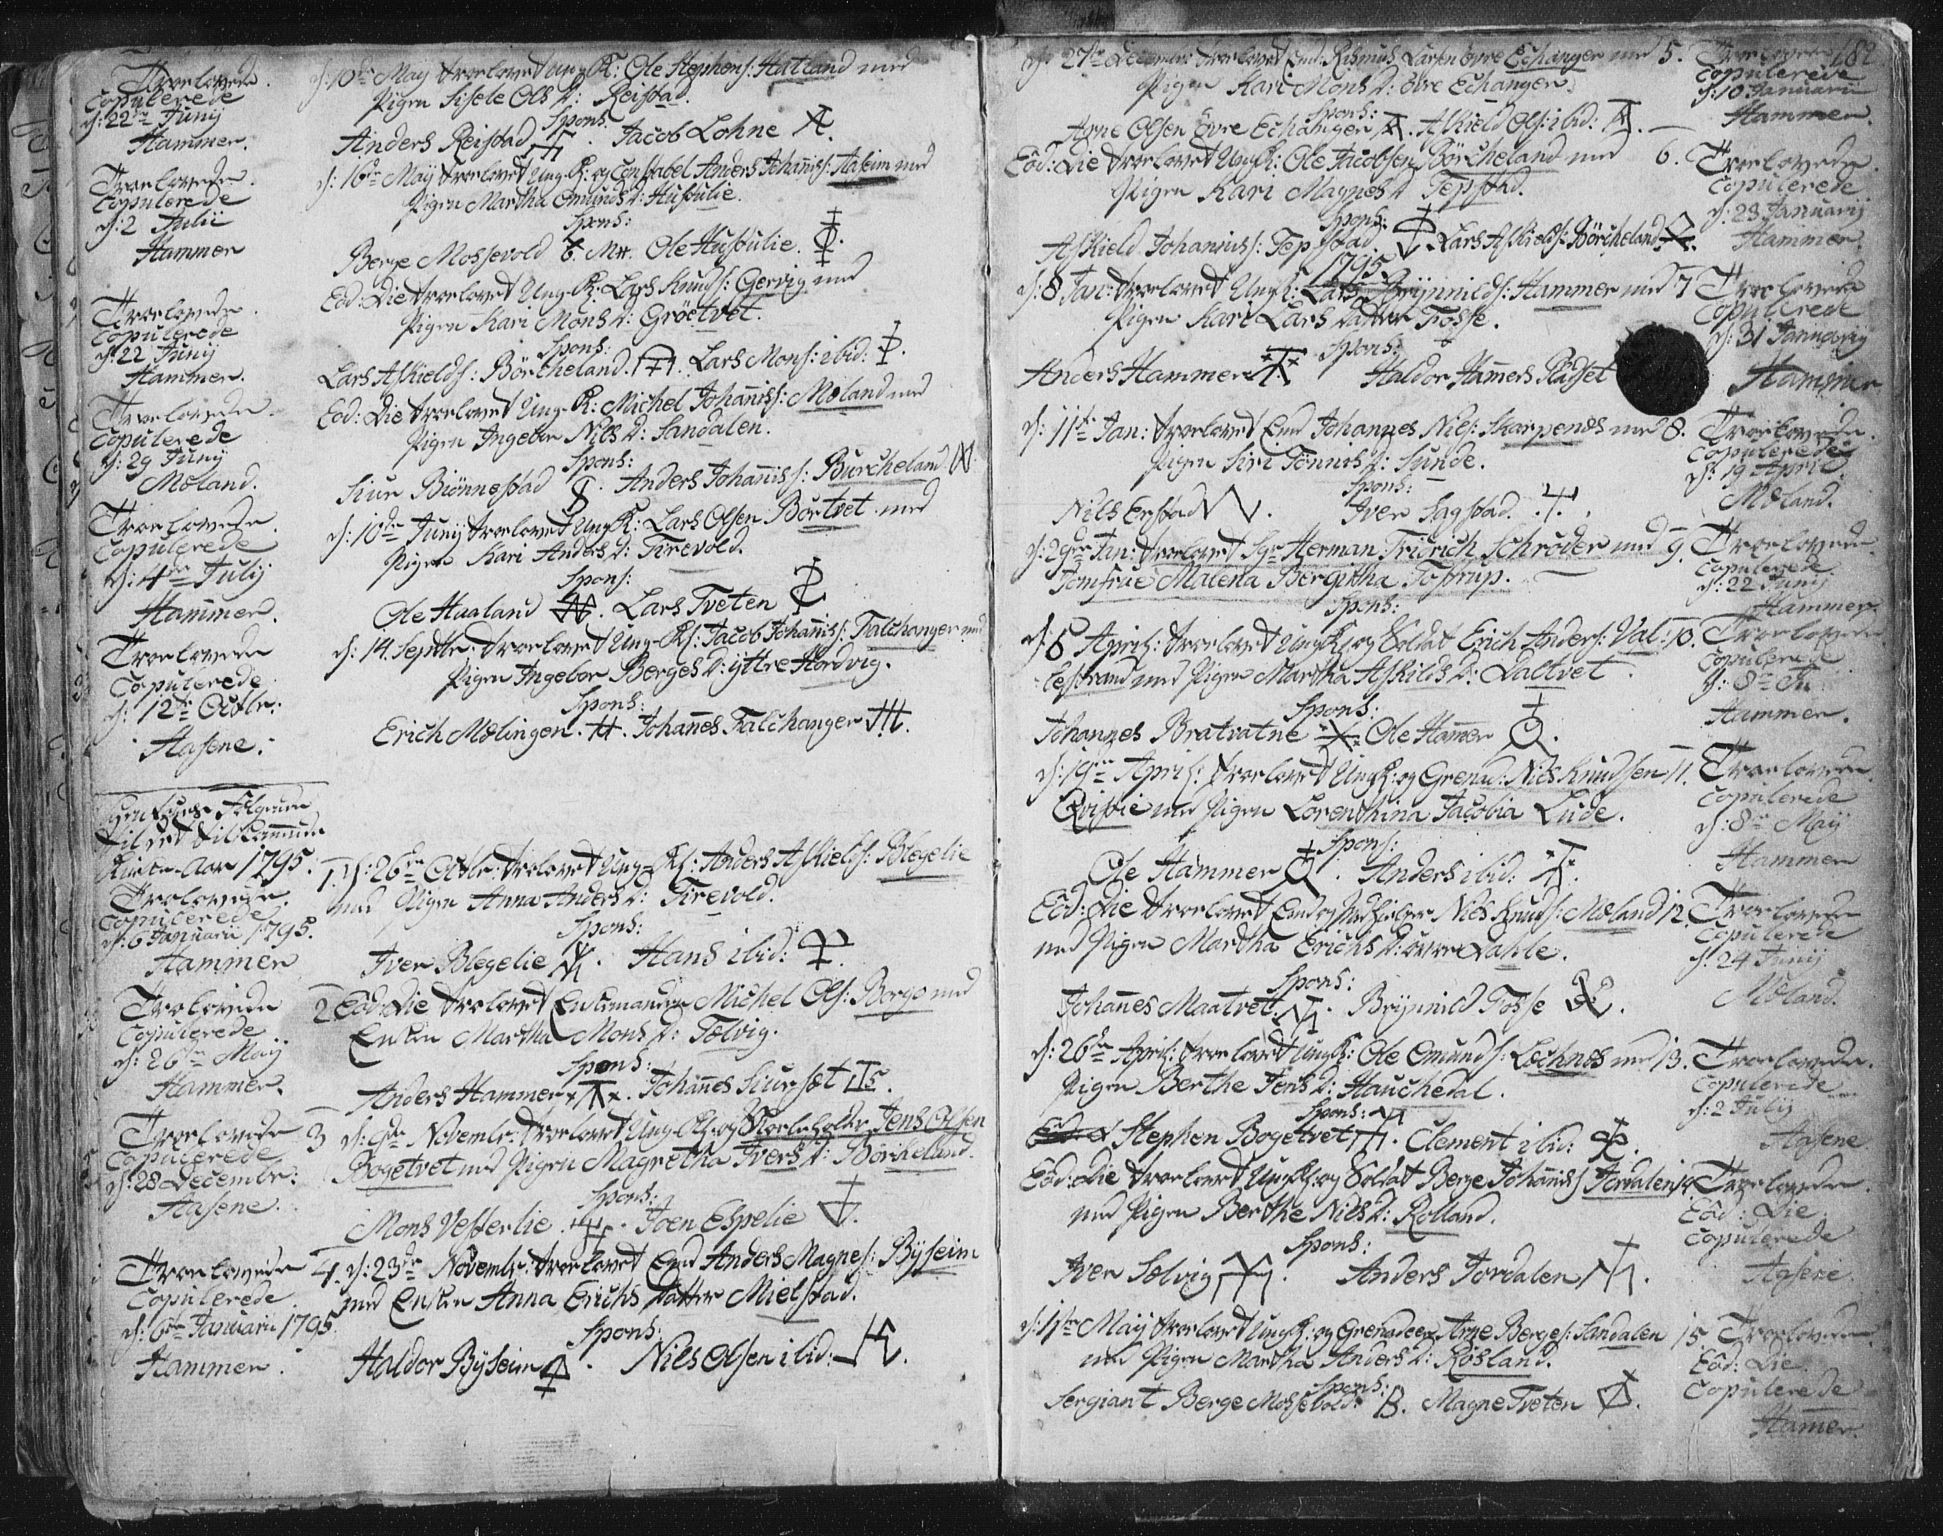 Troelovede
Copulerede
d: 22de Junij
Hammer.
d: 10de Maij troelovet Ung-K: Ole Stephens: Hatland med
Pigen Sisele Ols D: Reistad.
Spons:
Anders Reistad. Jacob Lohne
Troelovede
Copulerede
d: 2 Julii
Hammer
d: 16de Maij troelovet Ung-K: og Constabel Anders Johannis: Aaseim med
Pigen Martha Omunds D: Husdulie.
Spons:
Berge Mossevold B. Ole Husdulie.
Troelovede
Copulerede
d: 22 Junij
Hammer.
Eod: Die troelovet Ung-K: Lars Knuds: Gervig med
Pigen Kari Mons D: Gröetvet.
Spons:
Lars Askields: Börcheland. Lars Mons: ibid:
Troelovede
Copulerede
d: 29 Junij
Mœland.
Eod: Die troelovet Ung-K: Michel Johannis: Mœland med
Pigen Ingebor Nils D: Sandalen.
Spons:
Siur Biönnestad. Anders Johannis: Burcheland
Troelovede
Copulerede
d: 4de Julij
Hammer.
d: 10de Junij troelovet Ung-K: Lars Olsen Börtvet med
Pigen Kari Anders D: Tirevold.
Spons:
Ole Haaland. Lars Tveten
Troelovede
Copulerede
d: 12te Octbr:
Aasene.
d: 14. Septbr: troelovet Ung-K: Jacob Johannis: Falchanger med
Pigen Ingebor Berges D: ijttre Hordvig.
Spons:
Erich Mœlingen. H. Johannes Falchanger
Aar 1795.
Troelovede.
Copulerede
d: 6 Januarii 1795.
Hammer
1. d: 26de Octbr: troelovet Ung-K: Anders Askields: Blegelie
med Pigen Anna Anders D: Tirevold.
Spons:
Iver Blegelie. Hans ibid:
Troelovede
Copulerede
d: 26de Maij
Hammer.
2 Eod: Die troelovet Enkemanden Michel Ols: Borge med
Enken Martha Mons D: Tœlvig.
Spons:
Anders Hammer. Johannes Siursæt
Troelovede
Copulerede
d: 28 Decembr:
Aasene.
3 d: Novembr: troelovet Ung-K: og Jens Olsen
Bogetvet med Pigen Magretha Ivers D: Börcheland.
Spons:
Mons Vesterlie. Joen Espelie
Troelovede
Copulerede
d: 6te Januarii 1795
Hammer.
4. d: 23de Novembr: troelovet Enk: Anders Magnes: Bijseim
med Enken Anna Erichs Datter Mielstad.
Spons:
Haldor Bijseim. Nils Olsen ibid:
182
d: 27de Decembr: troelovet Enk: Rasmus Larsen övre Echanger med 5.
Pigen Kari Mons D: övre Echanger.
Spons:
Arne Olsen övre Echanger. Askield Ols: ibid:
Troelovede
Copulerede
d: 10 Januarii
Hammer.
Eod: Die troelovet Ung-K: Ole Jacobsen Börcheland med 6.
Pigen Kari Magnes D: Tepstad.
Spons:
Askield Johannis: Tepstad. Lars Askields: Börcheland.
Troelovede
Copulerede
d: 23 Januarij
Hammer.
1795.
d: 8 Jan: troelovet Ung-K: Lars Brijnnilds: Hammer med 7
Pigen Kari Lars Datter Fosse.
Spons:
Anders Hammer. Haldor Hamers Pladset
Troelovede
Copulerede
d: 31 Januarij
Hammer
d: 11te Jan: troelovet Enk Johannes Nils: Skarpenes med 8.
Pigen Siri Tönnes D: Sunde.
Spons:
Nils Erstad. Iver Sagstad.
Troelovede.
Copulerede
d: 19 April
Mœland.
d: 29de Jan: troelovet Sgr Herman Fridrich Schröder med 9.
Jomfrue Malena Bergitha Tostrup.
Spons:
Troelovede
Copulerede
d: 22 Junij
Hammer.
d: 6 April: troelovet Ung-K: og Soldat Erich Anders: Val: 10.
lestrand med Pigen Martha Askilds D: Daltvet.
Spons:
Johannes Bratvatne. Ole Hammer
Troelovede
Copulerede
Hammer.
d: 19de April: troelovet Ung-K: og Grenad: Nils Knudsen 11.
Qvisvie med Pigen Lorenthina Jacobia Lude.
Spons:
Ole Hammer. Anders ibid:
Troelovede
Copulerede
d: 8de Maij
Hammer
Eod: Die troelovet Enk og Medhielper Nils Knuds: Mœland 12.
med Pigen Martha Erichs D: övre Dahle.
Spons:
Johannes Maatvet. Brijnnild Fosse
Troelovede
Copulerede
d: 24 Junij
Mœland.
d: 26de April: troelovet Ung-K: Ole Omunds: Lechnes med 13.
Pigen Berthe Jens D: Hauchedal.
Spons:
Stephen Bogetvet. Clement ibid:
Troelovede.
Copulerede
d: 2 Julij
Aasene
Eod: Die troelovet Ung-K: og Soldat Berge Johannis: Jordalen 14
med Pigen Berthe Nils D: Rolland.
Spons:
Iver Sœlvig. Anders Jordalen
Troelovede.
Eod: Die
Copulerede
Aasene
d: 11te Maij troelovet Ung-K: og Grenadeer Arne Berges: Sandalen 15.
med Pigen Martha Anders D: Rösland.
Spons:
Sergiant Berge Mossevold: B. Magne Tveten
Troelovede
Eod: Die
Copulerede
Hamer.